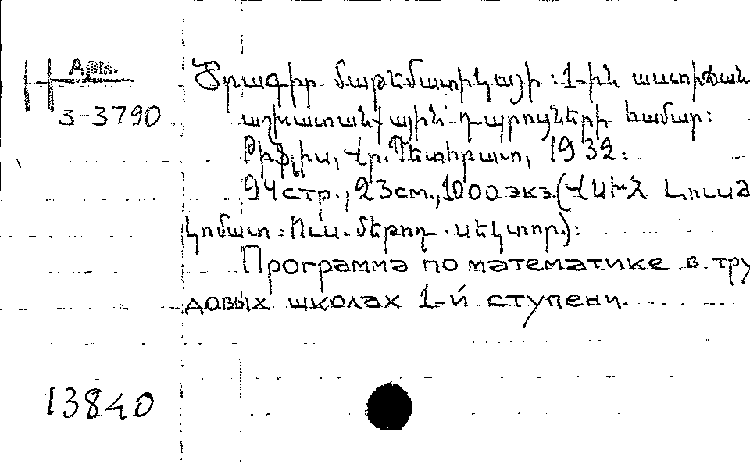 Арм.
3-3790
Ծրագիր մաթեմատիկայի: 1-ին աստիճան
աշխատանքային դպրոցների համար:
Թիֆլիս, Վր. Պետհրատ, 1932:
94стр., 23см., 1000экз. (ՎՍԽՀ Լուս
կոմատ. Ուս. մեթոդ. սեկտոր):
Программа по математике в тру
довых школах 1-й ступени.
13840